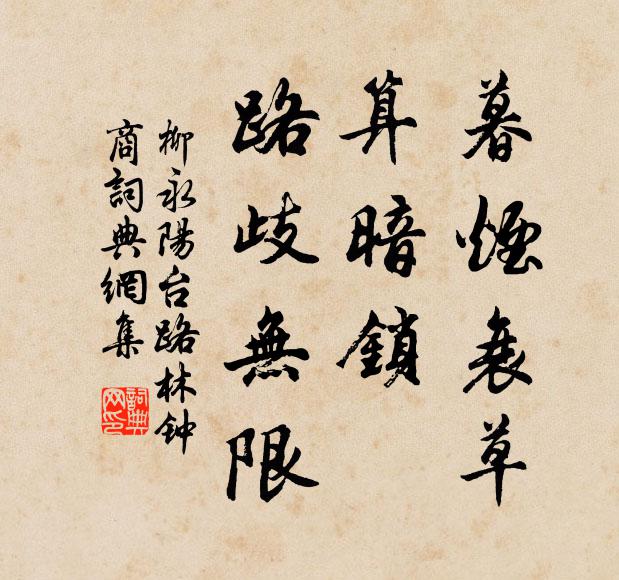 暮煙衰草
算暗鎖
路歧無限
柳永陽台路林钟
商詞典網集
詞典
网印